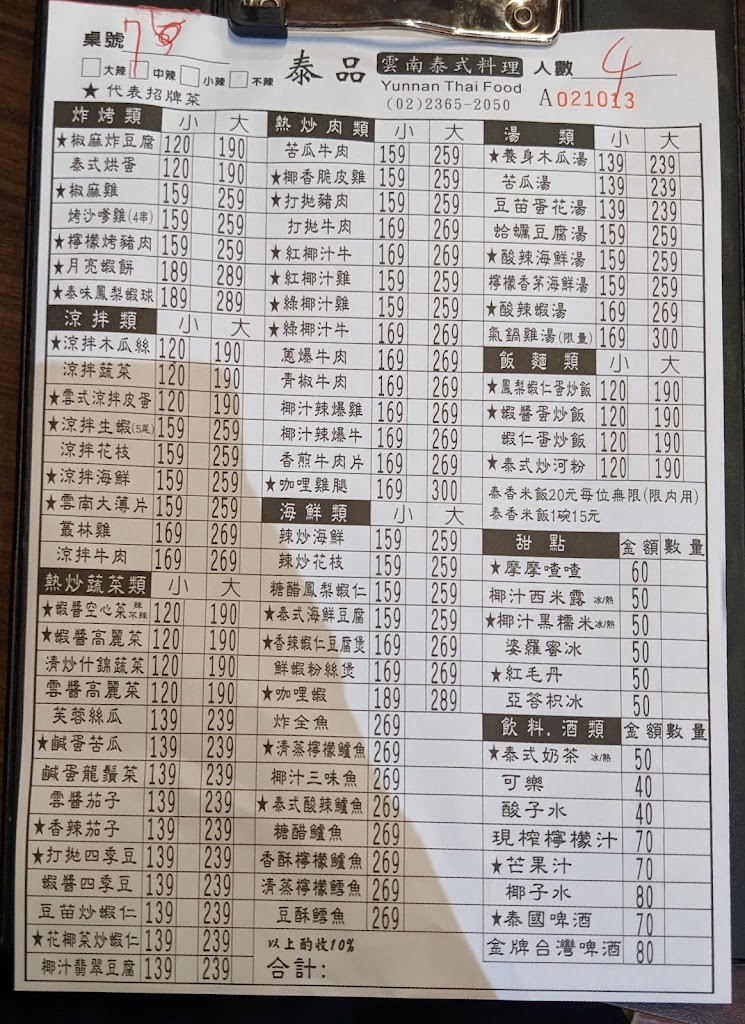 桌號 7
泰品 雲南泰式料理 人數 4
□大辣 □中辣 □小辣 □不辣
Yunnan Thai Food
★代表招牌菜
(02)2365-2050
A021013
炸烤類 小 大
★椒麻炸豆腐 120 190
泰式烘蛋 120 190
★椒麻雞 159 259
烤沙爹雞(4串) 159 259
★檸檬烤豬肉 159 259
★月亮蝦餅 189 289
★泰味鳳梨蝦球 189 289
涼拌類 小 大
★涼拌木瓜絲 120 190
涼拌蔬菜 120 190
★雲式涼拌皮蛋 120 190
★涼拌生蝦(5尾) 159 259
涼拌花枝 159 259
★涼拌海鮮 159 259
★雲南大薄片 159 259
叢林雞 169 269
涼拌牛肉 169 269
熱炒蔬菜類 小 大
★蝦醬空心菜 辣 不辣 120 190
★蝦醬高麗菜 120 190
清炒什錦蔬菜 120 190
雲醬高麗菜 120 190
芙蓉絲瓜 139 239
★鹹蛋苦瓜 139 239
鹹蛋龍鬚菜 139 239
雲醬茄子 139 239
★香辣茄子 139 239
★打拋四季豆 139 239
蝦醬四季豆 139 239
豆苗炒蝦仁 139 239
★花椰菜炒蝦仁 139 239
椰汁翡翠豆腐 139 239
熱炒肉類 小 大
苦瓜牛肉 159 259
★椰香脆皮雞 159 259
★打拋豬肉 159 259
打拋牛肉 169 269
★紅椰汁牛 169 269
★紅椰汁雞 159 259
★綠椰汁雞 159 259
★綠椰汁牛 169 269
蔥爆牛肉 169 269
青椒牛肉 169 269
椰汁辣爆雞 169 269
椰汁辣爆牛 169 269
香煎牛肉片 169 269
★咖哩雞腿 169 300
海鮮類 小 大
辣炒海鮮 159 259
辣炒花枝 159 259
糖醋鳳梨蝦仁 159 259
★泰式海鮮豆腐 159 259
★香辣蝦仁豆腐煲 169 269
鮮蝦粉絲煲 169 269
★咖哩蝦 189 289
炸全魚 269
★清蒸檸檬鱸魚 269
椰汁三味魚 269
★泰式酸辣鱸魚 269
糖醋鱸魚 269
香酥檸檬鱸魚 269
清蒸檸檬鱈魚 269
豆酥鱈魚 269
以上酌收10%
合計:
湯類 小 大
★養身木瓜湯 139 239
苦瓜湯 139 239
豆苗蛋花湯 139 239
蛤蠣豆腐湯 159 259
★酸辣海鮮湯 159 259
檸檬香茅海鮮湯 159 259
★酸辣蝦湯 169 269
氣鍋雞湯(限量) 169 300
飯麵類 小 大
★鳳梨蝦仁蛋炒飯 120 190
★蝦醬蛋炒飯 120 190
蝦仁蛋炒飯 120 190
★泰式炒河粉 120 190
泰香米飯20元每位無限(限內用)
泰香米飯1碗15元
甜點 金額 數量
★摩摩喳喳 60
椰汁西米露 冰/熱 50
★椰汁黑糯米 冰/熱 50
婆羅蜜冰 50
★紅毛丹 50
亞荅枳冰 50
飲料.酒類 金額 數量
★泰式奶茶 冰/熱 50
可樂 40
酸子水 40
現榨檸檬汁 70
★芒果汁 70
椰子水 80
★泰國啤酒 70
金牌台灣啤酒 80